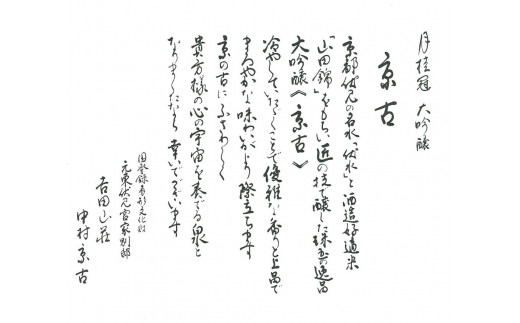 月桂冠 大吟醸
京古
京都伏見の名水「伏水」と酒造好適米
「山田錦」をもちい、匠の技で醸した珠玉の逸品
大吟醸《京古》
冷やしていただくことで優雅な香りと上品で
まろやかな味わいがより際立ちます
京の古にふさわしく
貴方様の心の宇宙を奏でる泉と
なりましたら幸いでございます
国登録有形文化財
元東伏見宮家別邸
吉田山荘
中村京古